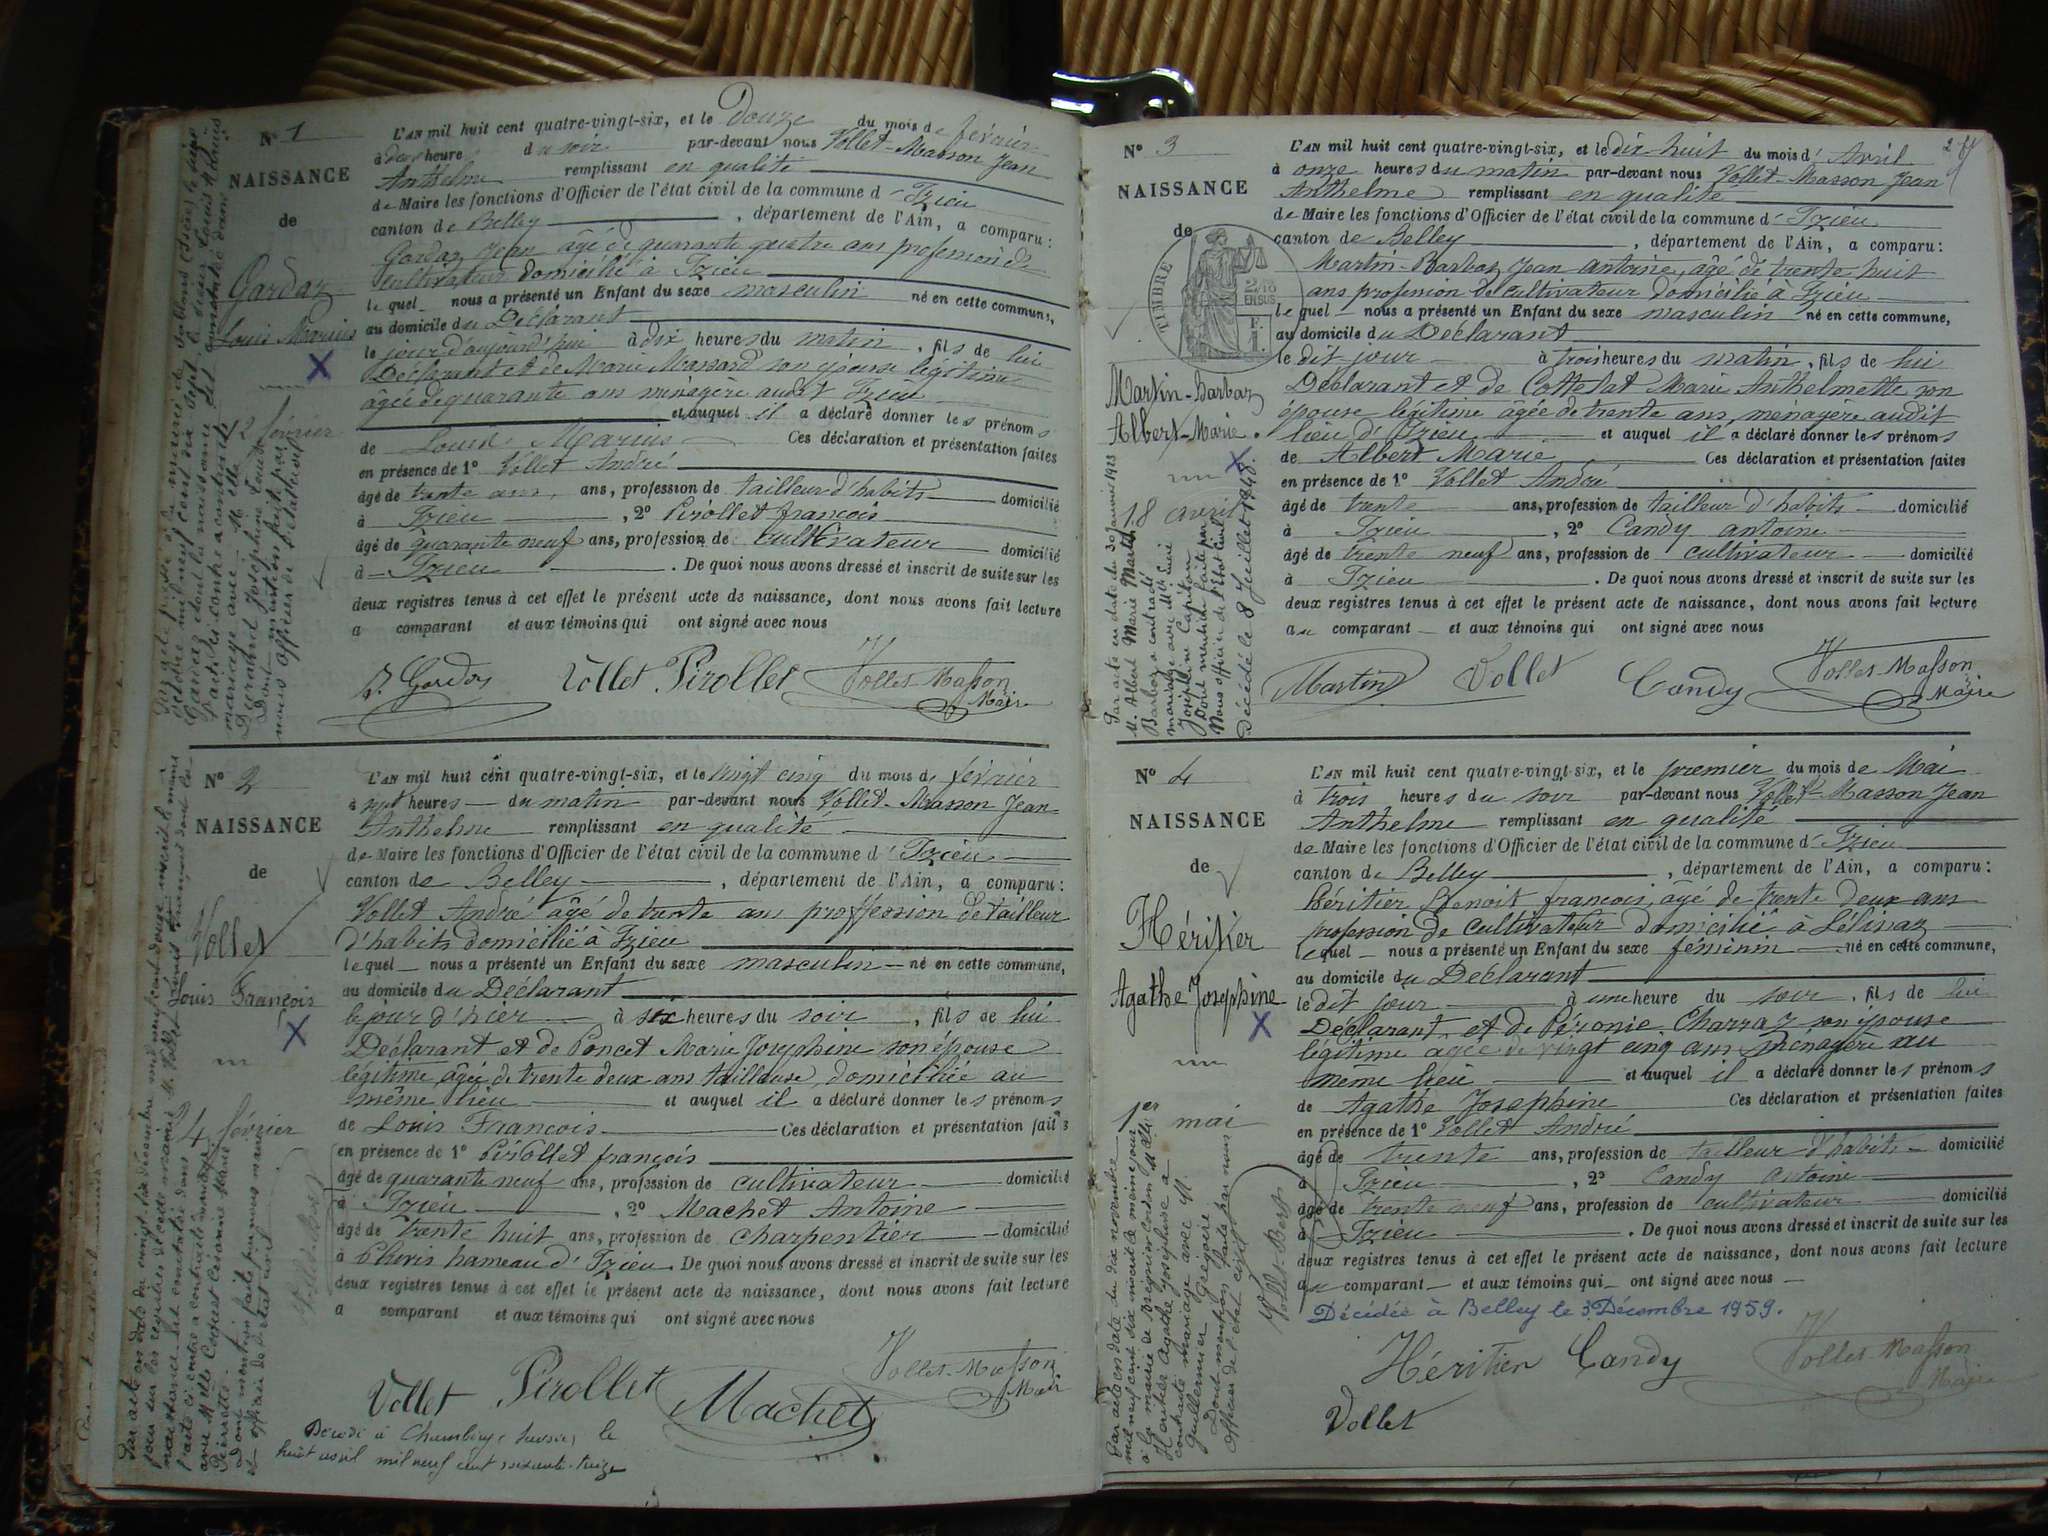 N° 1
NAISSANCE
de
Gardaz
Louis Marius
12 février
L'AN mil huit cent quatre-vingt-six, et le Douze du mois de février
à deux heure du soir par-devant nous Vollet-Masson Jean
Anthelme remplissant en qualité
de Maire les fonctions d'Officier de l'état civil de la commune d' Izieu
canton de Belley, département de l'Ain, a comparu :
Gardaz Jean âgé de quarante quatre ans profession de
cultivateur domicilié à Izieu
lequel nous a présenté un Enfant du sexe masculin né en cette commune,
au domicile du Déclarant
le jour d'aujourd'hui à dix heures du matin, fils de lui
Déclarant et de Marie Massard son épouse légitime
âgée de quarante ans ménagère audit Izieu
et auquel il a déclaré donner les prénoms
de Louis Marius Ces déclaration et présentation faites
en présence de 1° Vollet André
âgé de trente ans, ans, profession de tailleur d'habits domicilié
à Izieu, 2° Pirollet françois
âgé de quarante neuf ans, profession de cultivateur domicilié
à Izieu. De quoi nous avons dressé et inscrit de suite sur les
deux registres tenus à cet effet le présent acte de naissance, dont nous avons fait lecture
a comparant et aux témoins qui ont signé avec nous
Vollet Pirollet Vollet-Masson
Maire
N° 2
NAISSANCE
de
Vollet
Louis François
24 février
L'AN mil huit cent quatre-vingt-six, et le vingt cinq du mois de février
à sept heures du matin par-devant nous Vollet-Masson Jean
Anthelme remplissant en qualité
de Maire les fonctions d'Officier de l'état civil de la commune d' Izieu
canton de Belley, département de l'Ain, a comparu :
Vollet André âgé de trente ans proffession de tailleur
d'habits domicilié à Izieu
lequel nous a présenté un Enfant du sexe masculin né en cette commune,
au domicile du Déclarant
le jour d'hier à six heures du soir, fils de lui
Déclarant et de Poncet Marie Josephine son épouse
légitime âgée de trente deux ans tailleuse, domiciliée au
même lieu et auquel il a déclaré donner les prénoms
de Louis François Ces déclaration et présentation faites
en présence de 1° Pirollet françois
âgé de quarante neuf ans, profession de cultivateur domicilié
à Izieu, 2° Machet Antoine
âgé de trente huit ans, profession de charpentier domicilié
à hameau d' Izieu De quoi nous avons dressé et inscrit de suite sur les
deux registres tenus à cet effet le présent acte de naissance, dont nous avons fait lecture
a comparant et aux témoins qui ont signé avec nous
Vollet Pirollet Machet Vollet-Masson
Maire
Décédé à Chambéry (Savoie) le
huit avril mil neuf cent soixante-treize
N° 3
NAISSANCE
de
TIMBRE
2/10
EN SUS
Martin-Barbaz
Albert-Marie.
18 avril
Par acte en date du 30 janvier 1923
M. Albert Marie Martin
Barbaz a contracté
mariage avec
Joséphine Capitan
Dont mention faite par
Nous officier de l'état civil
Décédé le 8 Juillet 1948.
L'AN mil huit cent quatre-vingt-six, et le dix-huit du mois d' Avril
à onze heures du matin par-devant nous Vollet-Masson Jean
Anthelme remplissant en qualité
de Maire les fonctions d'Officier de l'état civil de la commune d' Izieu
canton de Belley, département de l'Ain, a comparu :
Martin-Barbaz Jean Antoine, âgé de trente huit
ans profession de cultivateur domicilié à Izieu
lequel nous a présenté un Enfant du sexe masculin né en cette commune,
au domicile du Déclarant
le dit jour à trois heures du matin, fils de lui
Déclarant et de Marie Anthelmette son
épouse légitime âgée de trente ans, ménagère audit
lieu d'Izieu et auquel il a déclaré donner les prénoms
de Albert Marie Ces déclaration et présentation faites
en présence de 1° Vollet André
âgé de trente ans, profession de tailleur d'habits domicilié
à Izieu, 2° Candy antoine
âgé de trente neuf ans, profession de cultivateur domicilié
à Izieu. De quoi nous avons dressé et inscrit de suite sur les
deux registres tenus à cet effet le présent acte de naissance, dont nous avons fait lecture
au comparant et aux témoins qui ont signé avec nous
Martin Vollet Candy Vollet-Masson
Maire
N° 4
NAISSANCE
de
Héritier
Agathe Josephine
1er mai
L'AN mil huit cent quatre-vingt-six, et le premier du mois de Mai
à trois heures du soir par-devant nous Vollet-Masson Jean
Anthelme remplissant en qualité
de Maire les fonctions d'Officier de l'état civil de la commune d' Izieu
canton de Belley, département de l'Ain, a comparu :
Héritier Benoit françois, âgé de trente deux ans
profession de cultivateur domicilié à
lequel nous a présenté un Enfant du sexe féminin né en cette commune,
au domicile du Déclarant
le dit jour à une heure du soir, fils de lui
Déclarant et de Péronie Charraz son épouse
légitime âgée de vingt cinq ans ménagère au
même lieu et auquel il a déclaré donner les prénoms
de Agathe Josephine Ces déclaration et présentation faites
en présence de 1° Vollet André
âgé de trente ans, profession de tailleur d'habits domicilié
à Izieu, 2° Candy Antoine
âgé de trente neuf ans, profession de cultivateur domicilié
à Izieu. De quoi nous avons dressé et inscrit de suite sur les
deux registres tenus à cet effet le présent acte de naissance, dont nous avons fait lecture
au comparant et aux témoins qui ont signé avec nous
Décédée à Belley le 3 Décembre 1959.
Héritier Candy Vollet-Masson
Maire
Vollet